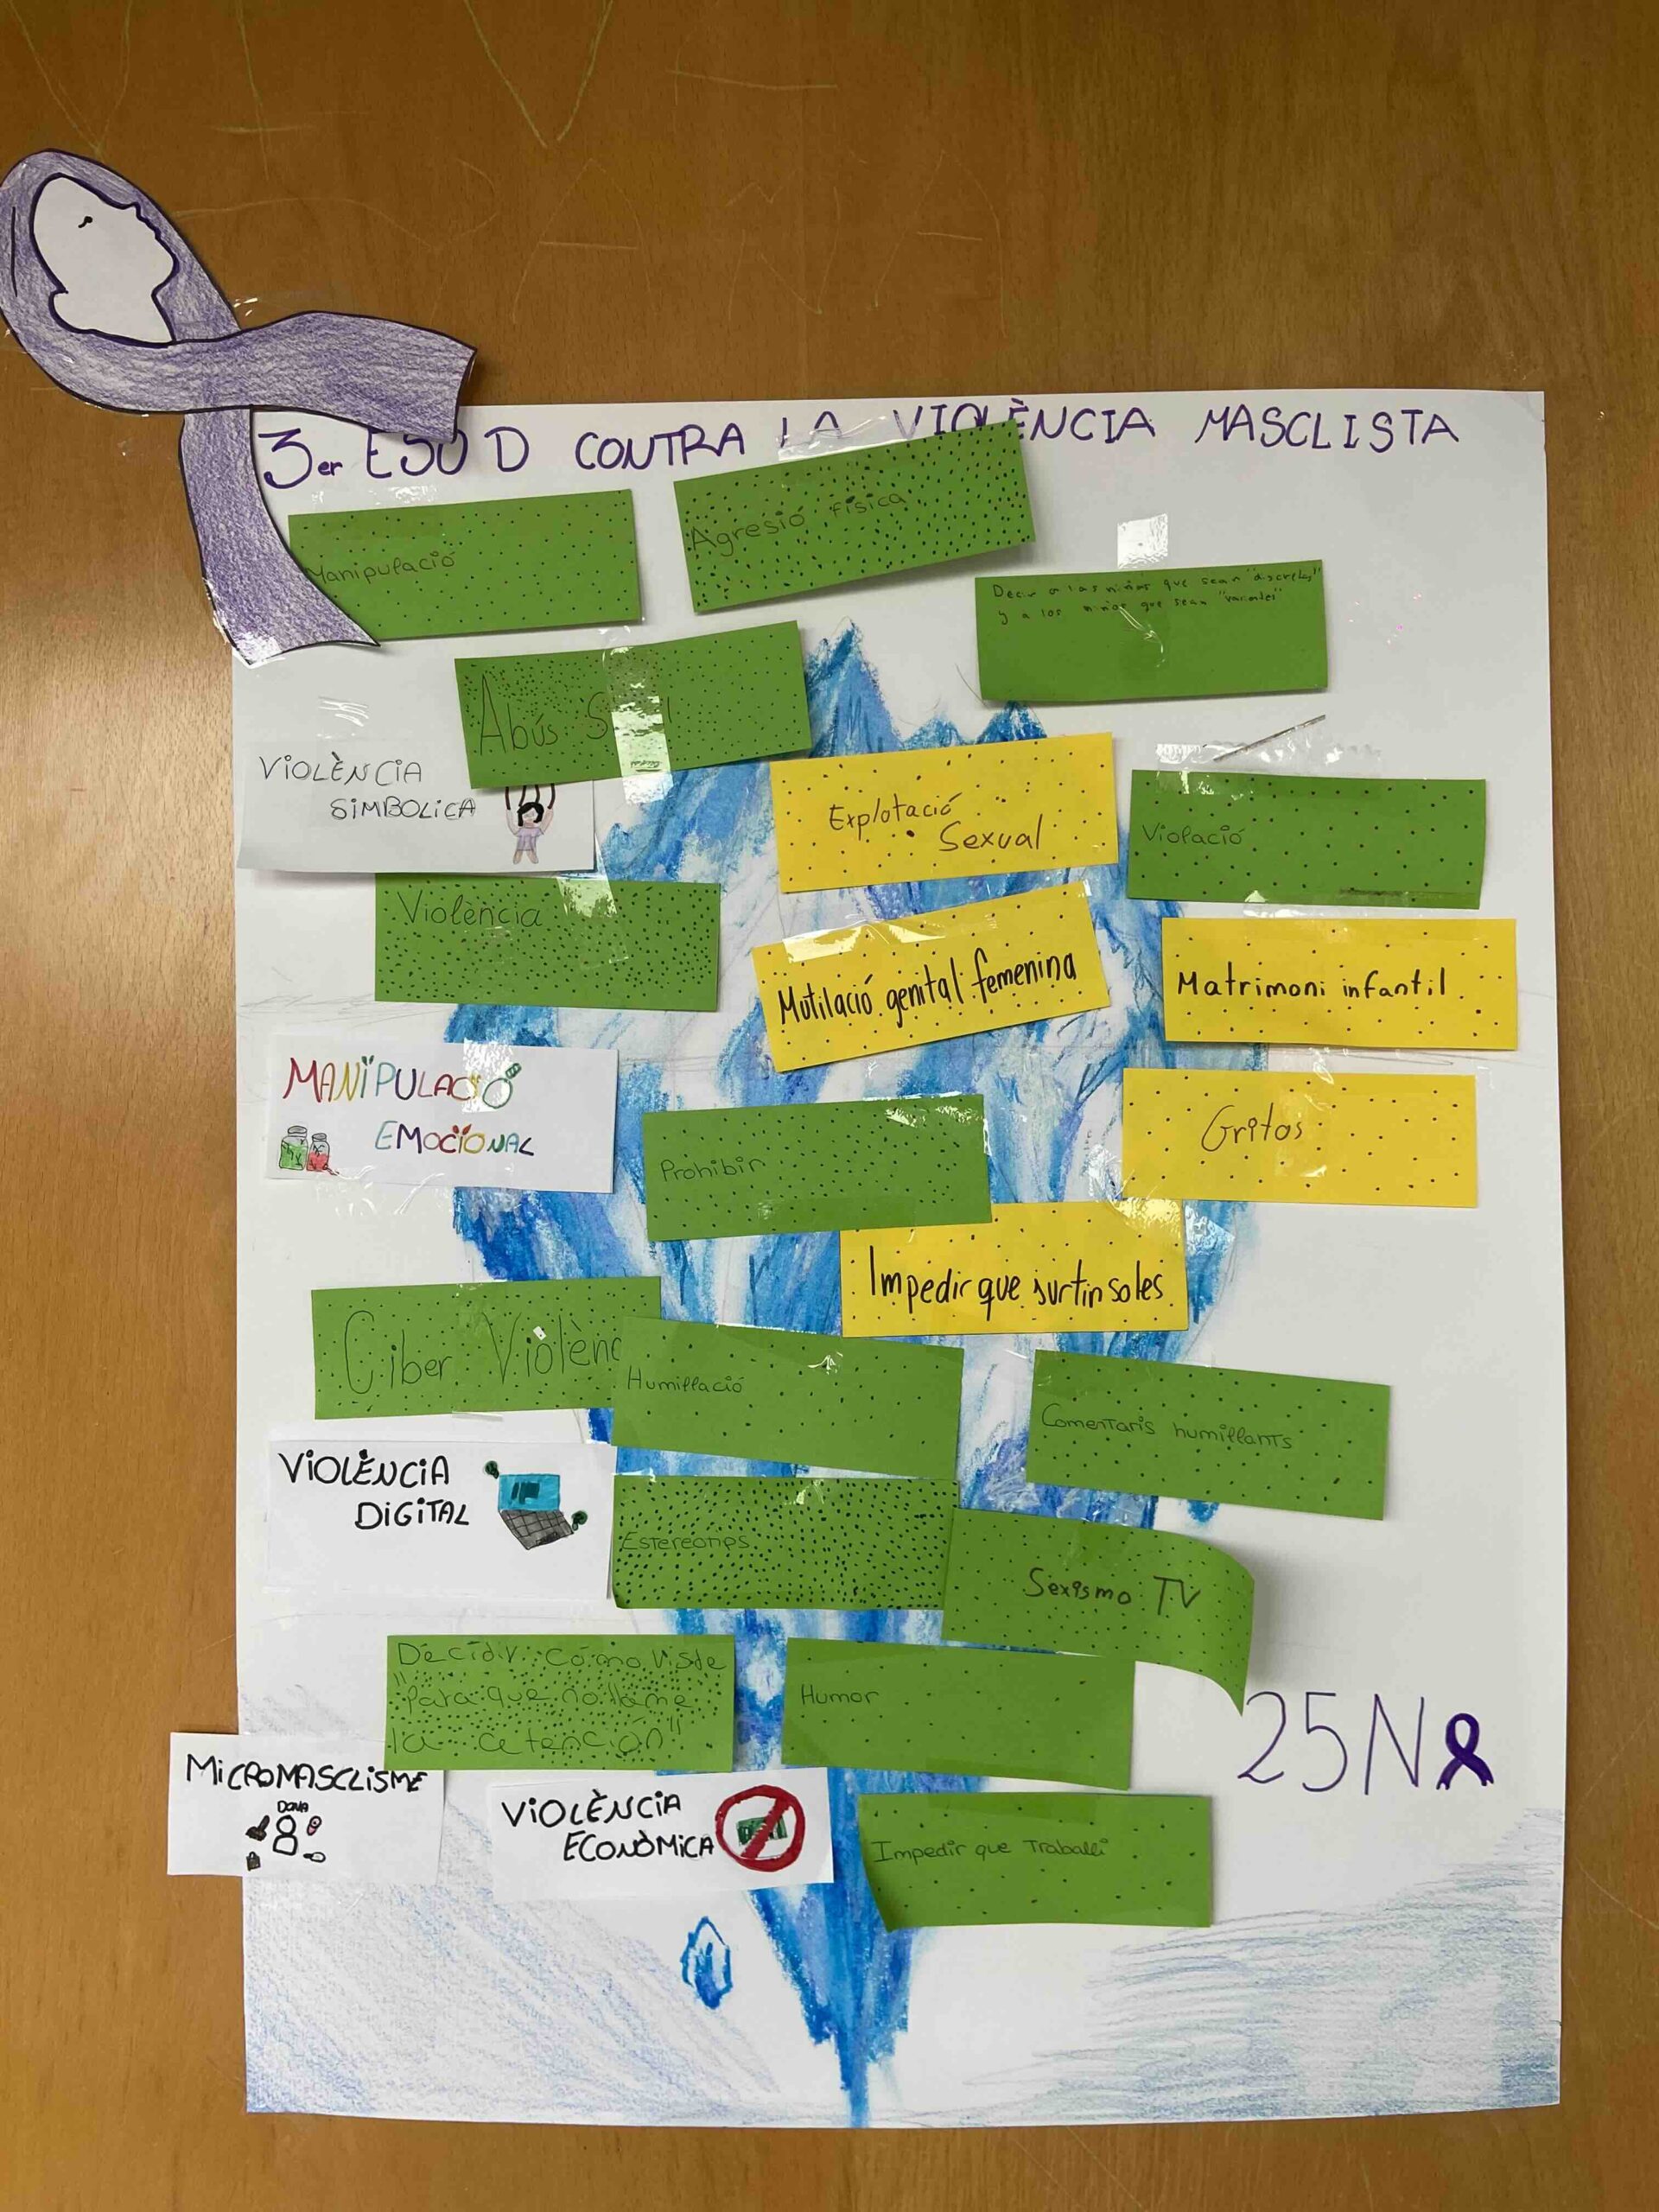 3er ESO D CONTRA LA VIOLÈNCIA MASCLISTA
Manipulació
Agresió física
Decir a las niñas que sean "discretas"
y a los niños que sean "valientes"
Abús
VIOLÈNCIA
SIMBOLICA
Explotació
Sexual
Violació
Violència
Mutilació genital femenina
Matrimoni infantil
MANIPULACIÓ
EMOCIONAL
Prohibir
Gritos
Impedir que surtin soles
Ciber Violènc
Humillació
Comentaris humillants
VIOLÈNCIA
DIGITAL
Estereotips
Sexismo TV
Decidir cómo viste
"para que no llame
la atención"
Humor
25N
MICROMASCLISME
DONA
VIOLÈNCIA
ECONÒMICA
Impedir que Traballi